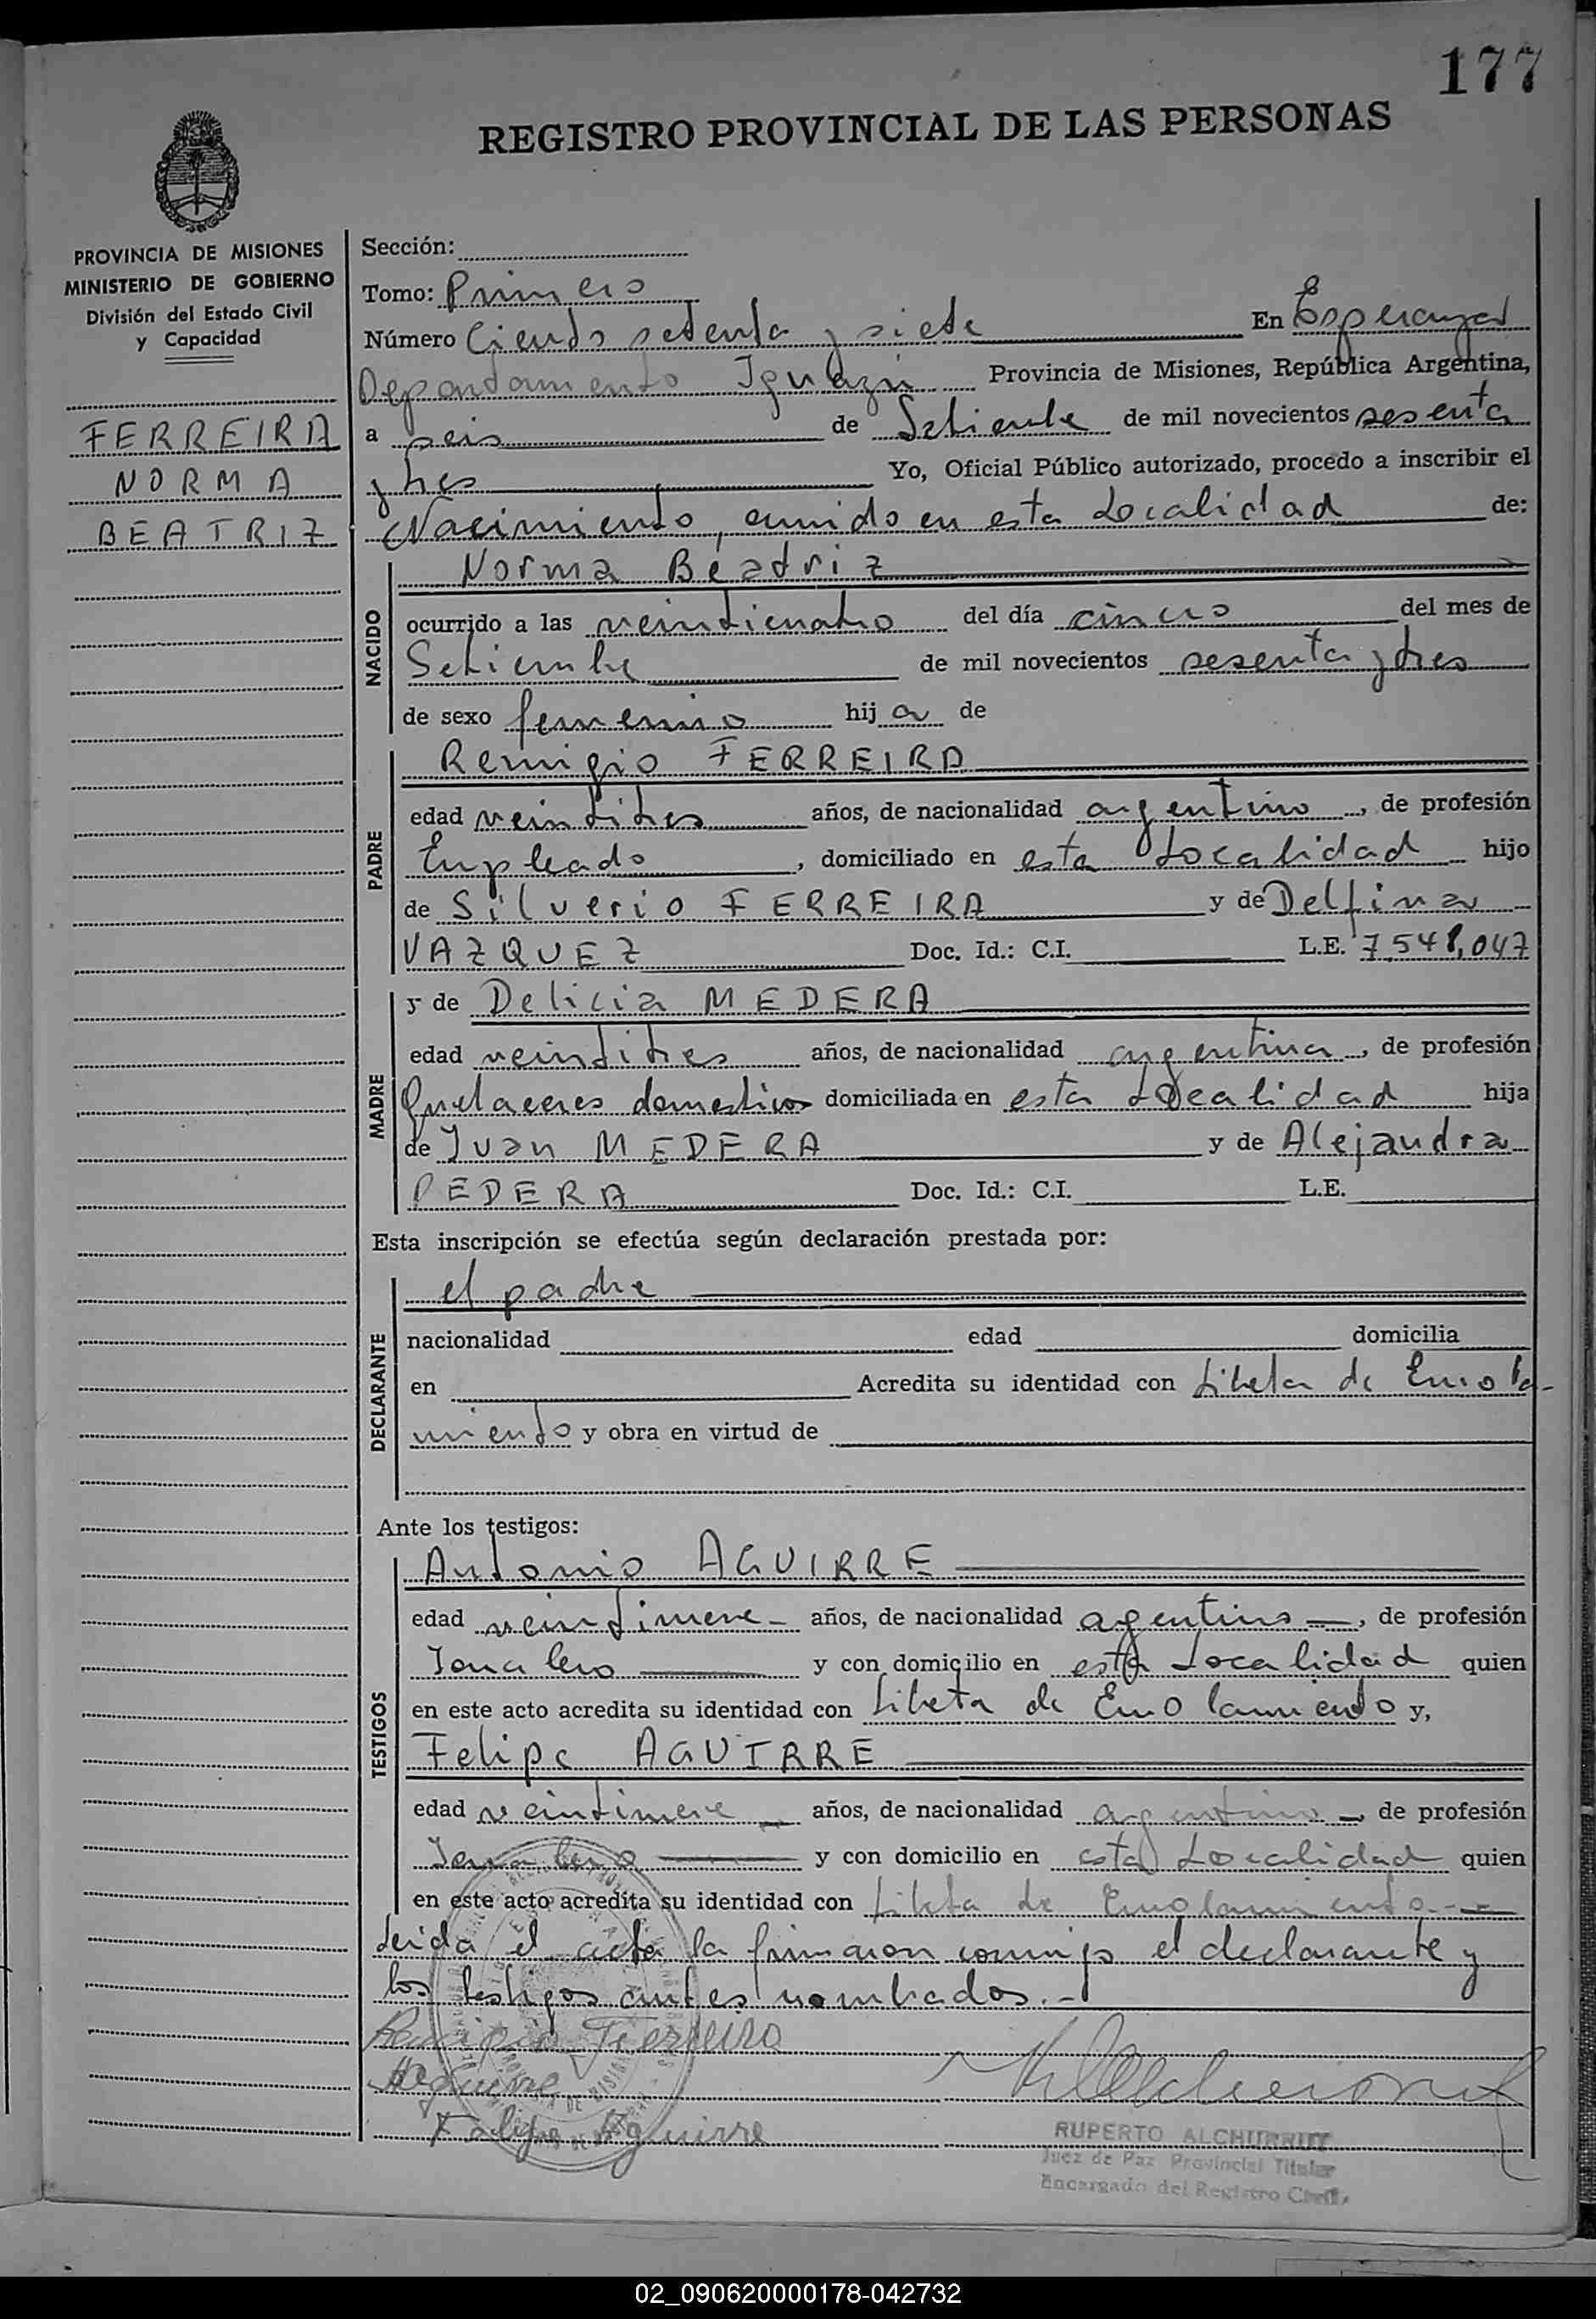 177
REGISTRO PROVINCIAL DE LAS PERSONAS
PROVINCIA DE MISIONES
MINISTERIO DE GOBIERNO
División del Estado Civil
y Capacidad
FERREIRA
NORMA
BEATRIZ
Sección:
Tomo: Primero
Número Ciento setenta y siete En Esperanza
Departamento Iguazú Provincia de Misiones, República Argentina,
a seis de Setiembre de mil novecientos sesenta
y tres Yo, Oficial Público autorizado, procedo a inscribir el
Nacimiento, ocurrido en esta Localidad de:
NACIDO
Norma Beatriz
ocurrido a las veinticuatro del día cinco del mes de
Setiembre de mil novecientos sesenta y tres
de sexo femenino hij a de
PADRE
Remigio FERREIRA
edad veintitres años, de nacionalidad argentino, de profesión
Empleado, domiciliado en esta Localidad hijo
de Silverio FERREIRA y de Delfina
VAZQUEZ Doc. Id.: C.I. L.E. 7.548,047
MADRE
y de Delicia MEDERA
edad veintitres años, de nacionalidad argentina, de profesión
Quehaceres domesticos domiciliada en esta Localidad hija
de Juan MEDERA y de Alejandra
PEDERA Doc. Id.: C.I. L.E.
Esta inscripción se efectúa según declaración prestada por:
DECLARANTE
el padre
nacionalidad edad domicilia
en Acredita su identidad con Libeta de Enrola-
miento y obra en virtud de
Ante los testigos:
TESTIGOS
Antonio AGUIRRE
edad veintinueve - años, de nacionalidad argentino -, de profesión
Jornalero y con domicilio en esta Localidad quien
en este acto acredita su identidad con Libeta de Enrolamiento y,
Felipe AGUIRRE
edad veintinueve - años, de nacionalidad argentino -, de profesión
Jornalero y con domicilio en esta Localidad quien
en este acto acredita su identidad con Libeta de Enrolamiento.--
Leida el acta la firmaron conmigo el declarante y
los testigos antes nombrados.-
Remigio Ferreira
Aguirre
Felipe Aguirre
RUPERTO ALCHURRUT
Juez de Paz Provincial Titular
Encargado del Registro Civil
02_090620000178-042732